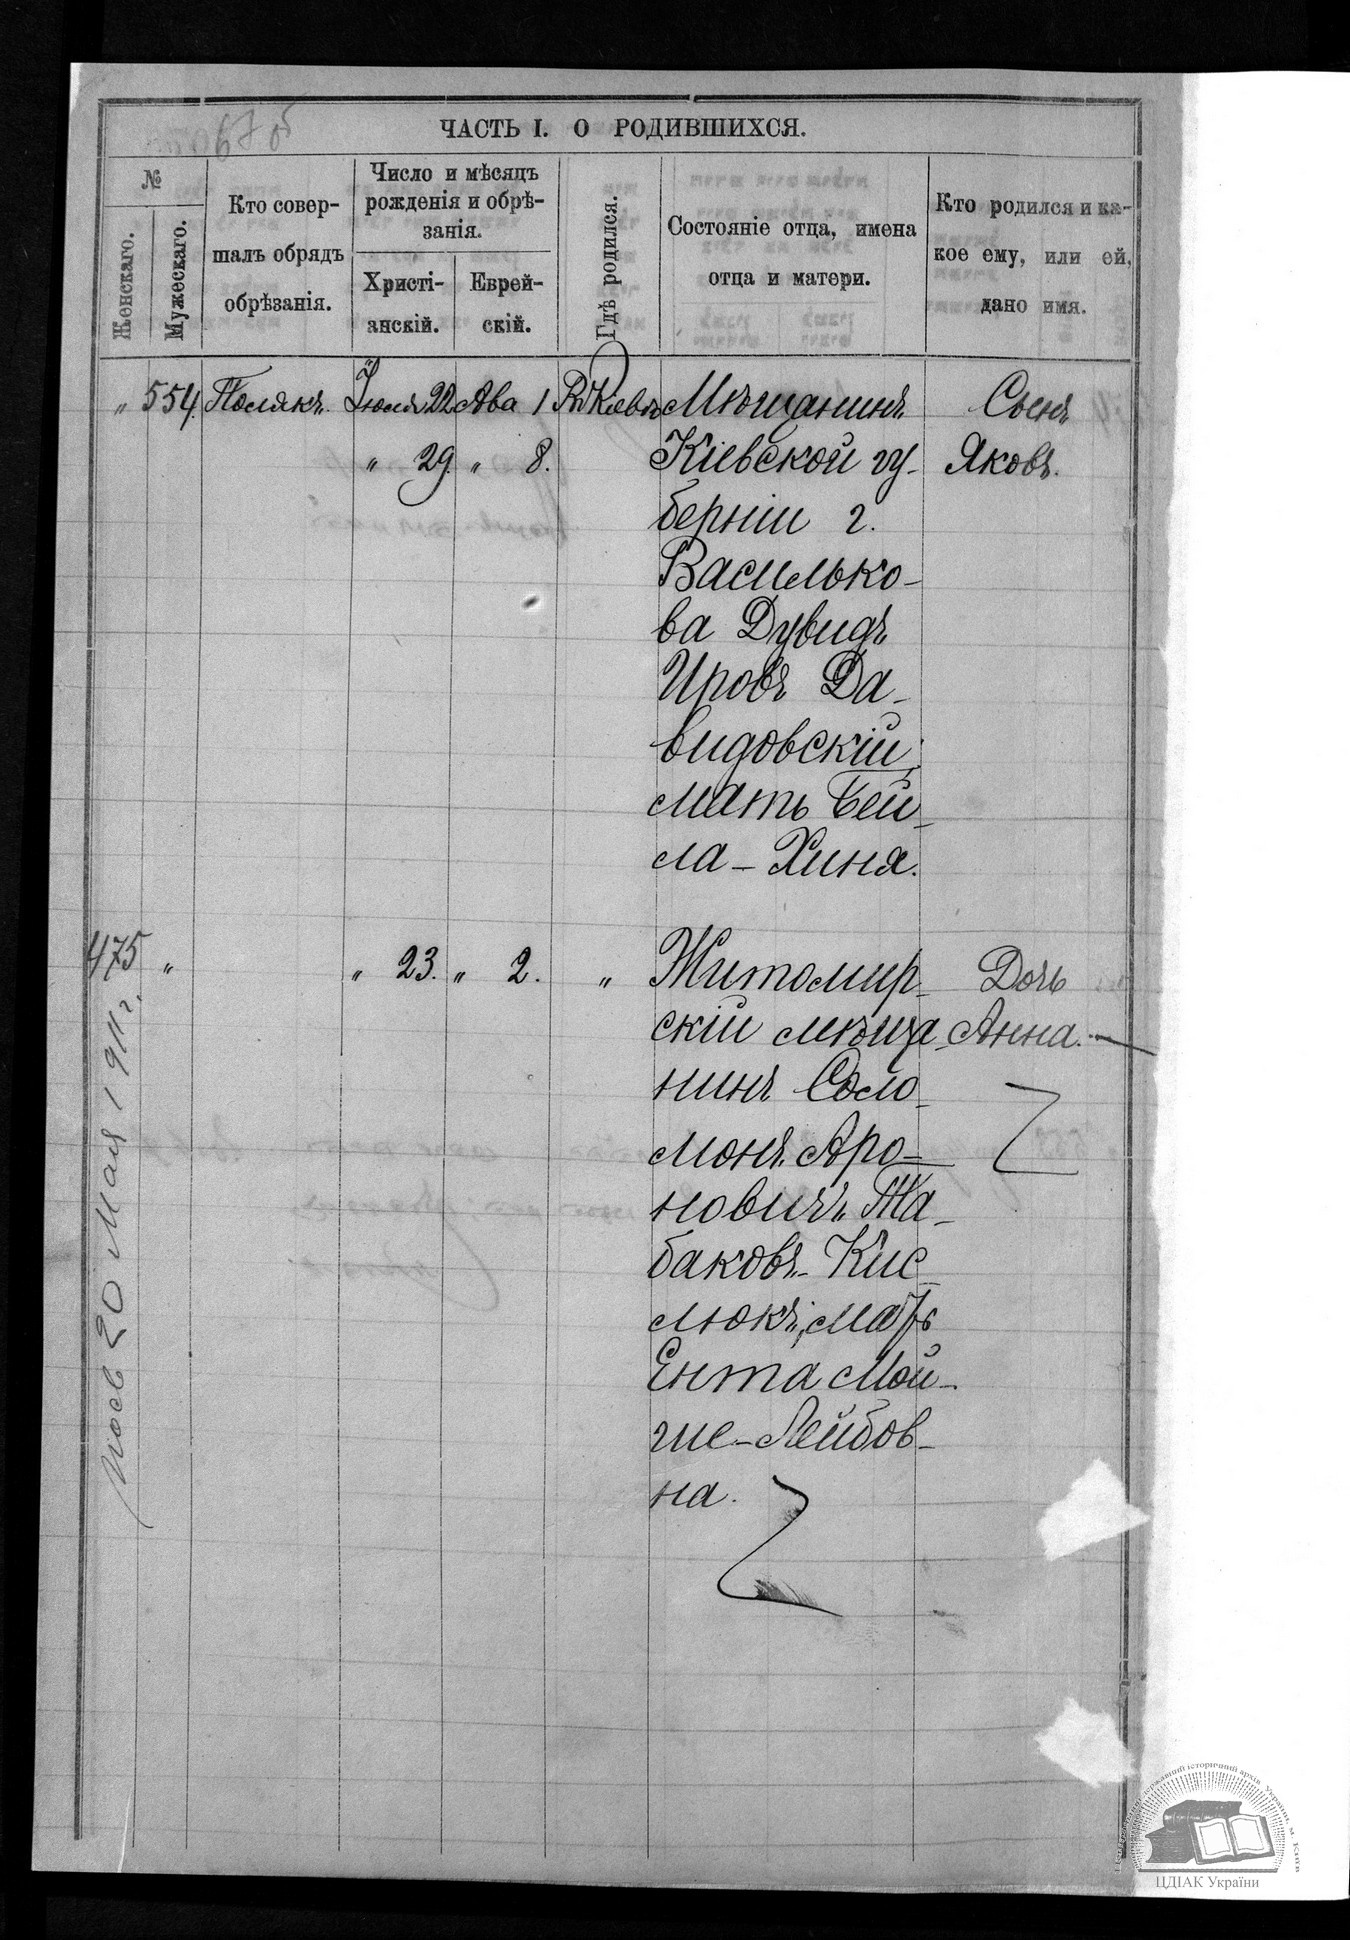 67 об
ЧАСТЬ I. О РОДИВШИХСЯ.
№
Женскаго.
Мужескаго.
Кто совер-
шалъ обрядъ
обрѣзанія.
Число и мѣсяцъ
рожденія и обрѣ-
занія.
Христі-
анскій.
Еврей-
скій.
Гдѣ родился.
Состояніе отца, имена
отца и матери.
Кто родился и ка-
кое ему, или ей,
дано имя.
„ 554. Полякъ. Іюля 22 Ава 1 Въ Кіевѣ Мѣщанинъ Сынъ
„ 29. „ 8. Кіевской гу- Яковъ.
берніи г.
Василько-
ва Дувидъ
Ировъ Да-
видовскій;
мать Бей-
ла-Хиня.
475 „ „ 23. „ 2. „ Житомир- Дочь
скій мѣща- Анна.
нинъ Соло-
монъ Аро-
новичъ Та-
баковъ-Кис-
люкъ, мать
Ента Мой-
ше-Лейбов-
на.
20 Мая 1911 г.
ЦДІАК України